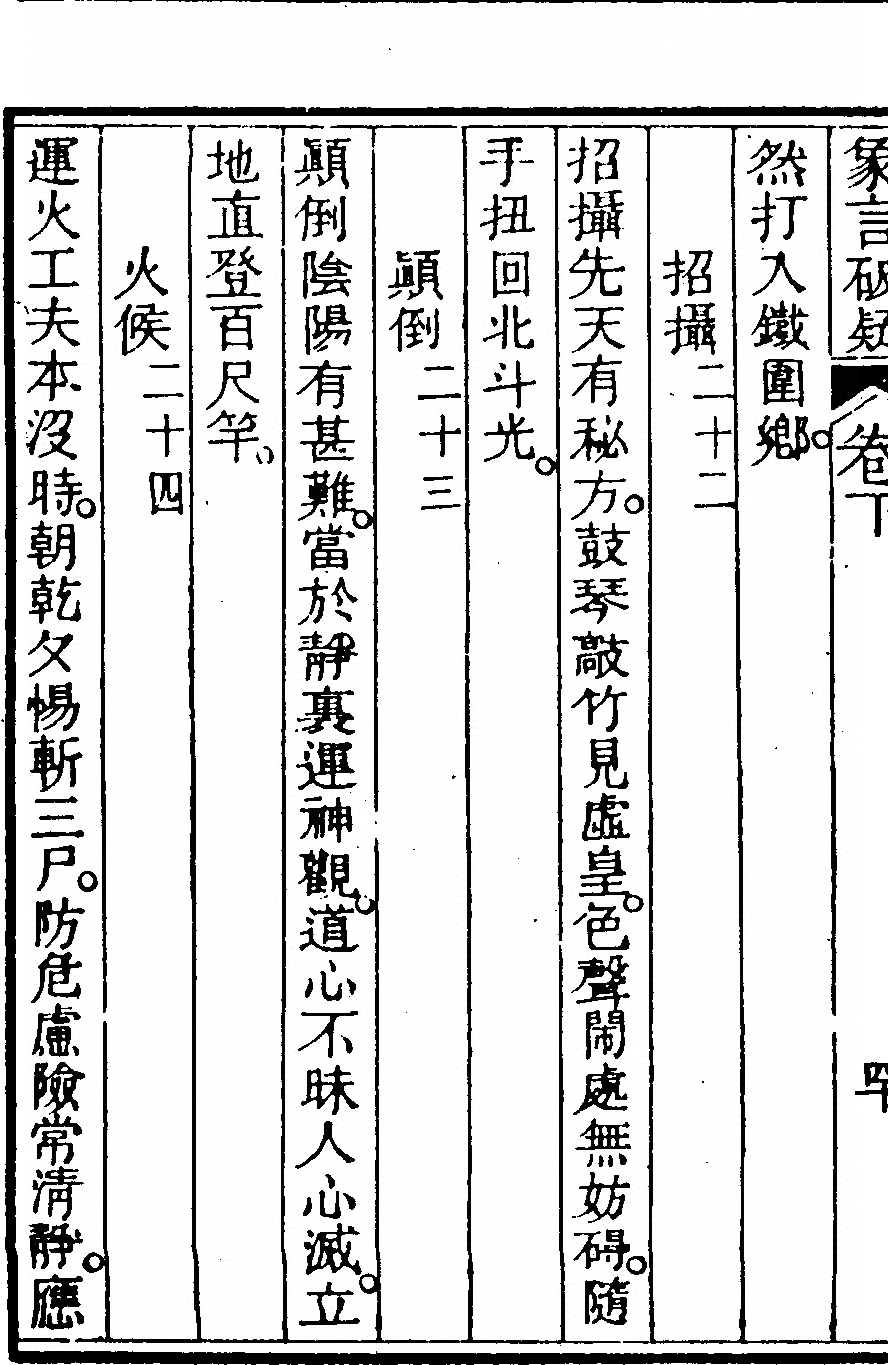 象言破疑 卷下 四十
然打入鐵圍鄉。
招攝 二十二
招攝先天有秘方。鼓琴敲竹見虛皇。色聲鬧處無妨碍。隨
手扭回北斗光。
顛倒 二十三
顛倒陰陽有甚難。當於靜裏運神觀。道心不昧人心滅。立
地直登百尺竿。
火候 二十四
運火工夫本没時。朝乾夕惕斬三尸。防危慮險常清靜。應